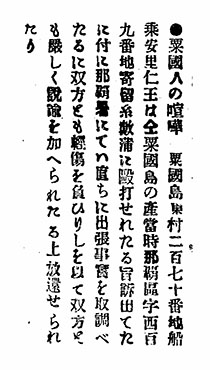 ●粟國人の喧嘩　粟國島東村二百七十番地船
乘安里仁王は仝粟國島の產當時那覇區字西百
九番地寄留糸數蒲に毆打せれたる旨訴出てた
に付に那覇署にてい直ちに出張事實を取調べ
たるに双方とも輕傷を負ひりしを以て双方と
も嚴しく說諭を加へられたる上放還せられ
たり